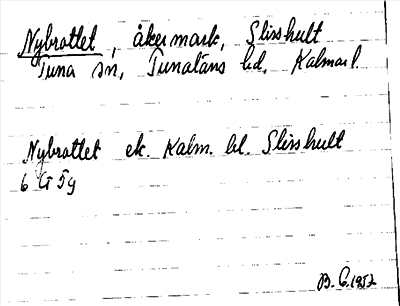 Nybrottet, åkermark, Slisshult
Tuna sn, Tunaläns hd, Kalmar l.
Nybrottet ek. Kalm. bl. Slisshult
6 G 5g
B. G. 1957